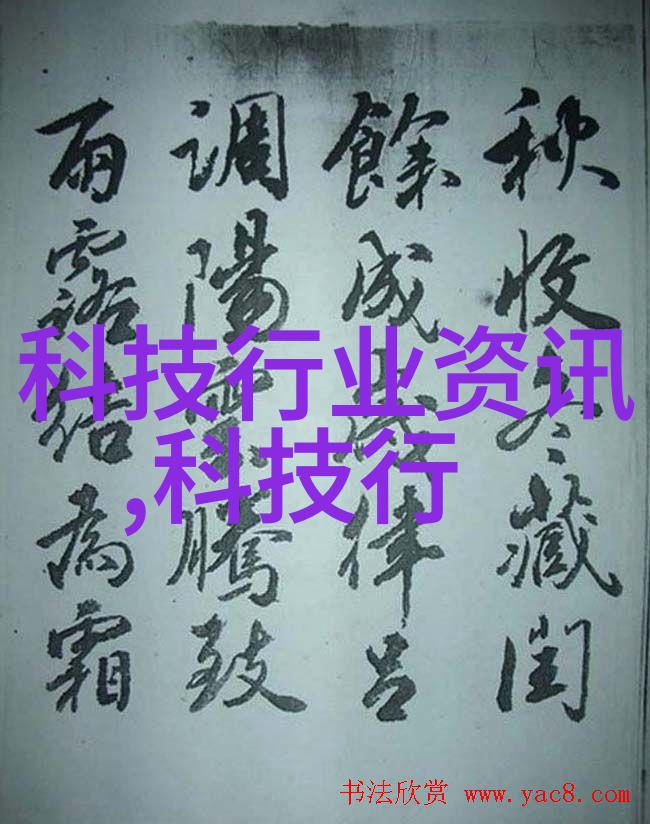 秋收冬藏閏
餘成歲律呂
調陽雲騰致
雨露結為霜
科技行业资讯
,科技行
书法欣赏 www.yac8.com